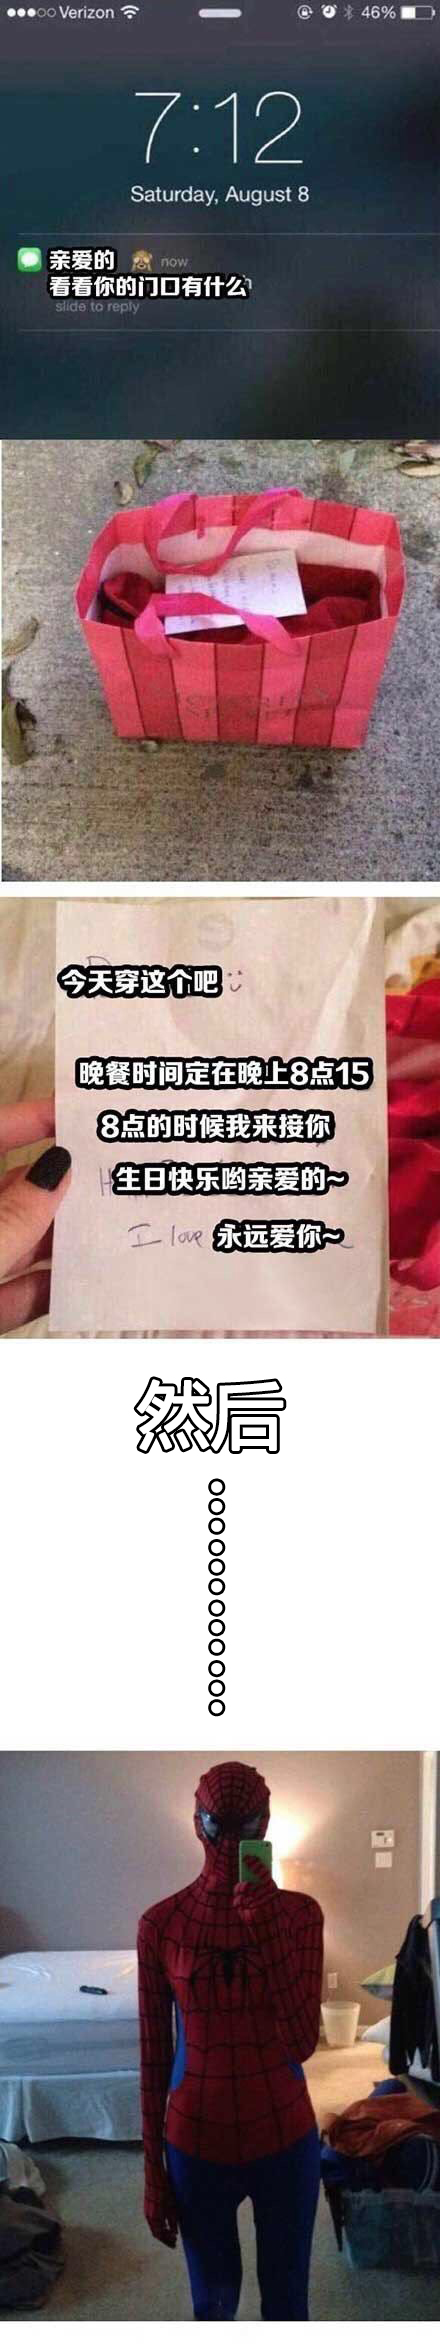 Verizon 46%
7:12
Saturday, August 8
亲爱的 now
看看你的门口有什么
slide to reply
今天穿这个吧
晚餐时间定在晚上8点15
8点的时候我来接你
生日快乐哟亲爱的~
I love 永远爱你~
然后
。。。。。。。。。。。。